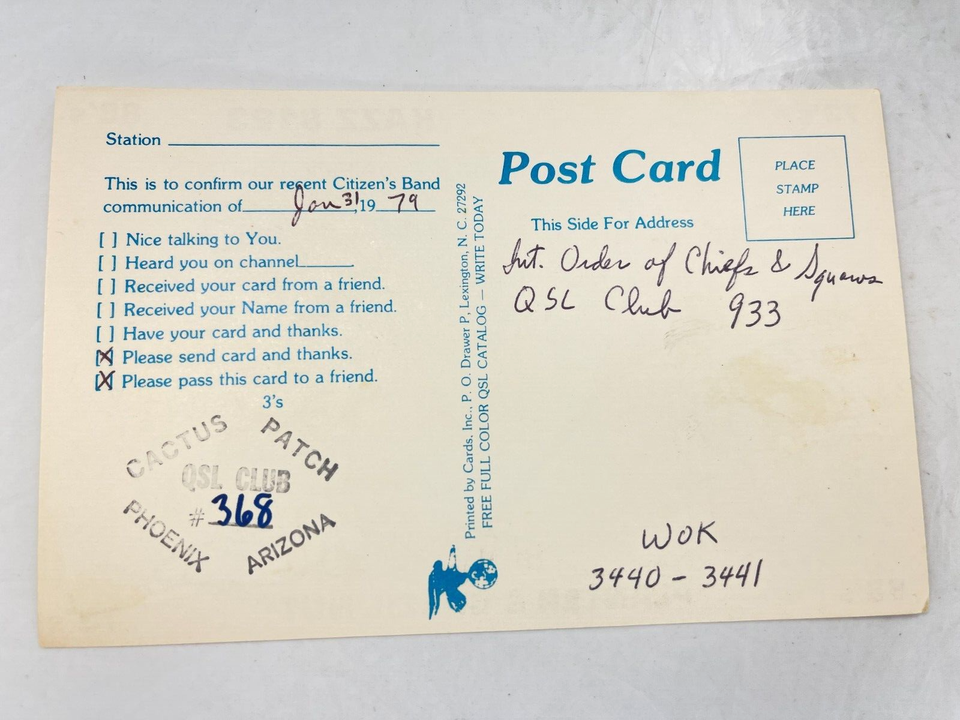 Station
This is to confirm our recent Citizen's Band
communication of Jan 31, 19 79
[ ] Nice talking to You.
[ ] Heard you on channel
[ ] Received your card from a friend.
[ ] Received your Name from a friend.
[ ] Have your card and thanks.
[X] Please send card and thanks.
[X] Please pass this card to a friend.
3's
CACTUS PATCH
QSL CLUB
# 368
PHOENIX ARIZONA
Printed by Cards. Inc., P. O. Drawer P, Lexington, N. C. 27292
FREE FULL COLOR QSL CATALOG — WRITE TODAY
Post Card
PLACE
STAMP
HERE
This Side For Address
Int. Order of Chiefs & Squaws
QSL Club 933
WOK
3440 - 3441